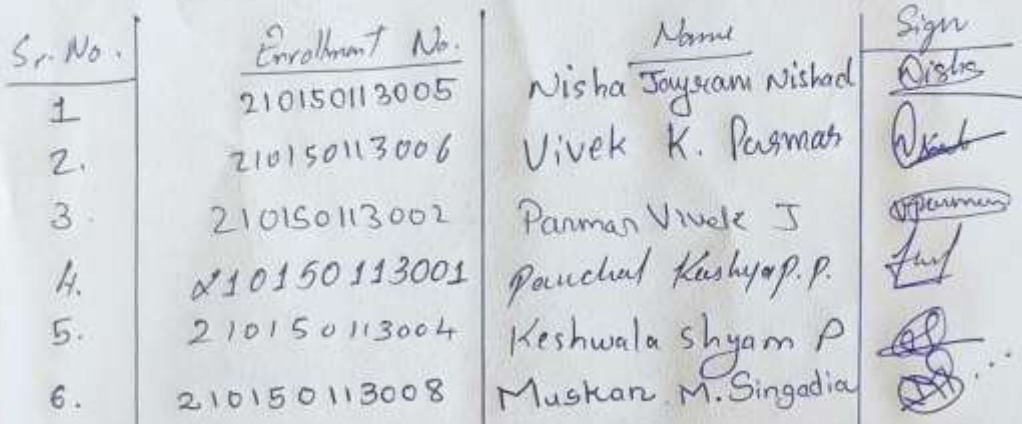 Sr. No. Enrollment No. Name Sign
1 210150113005 Nisha Jayram Nishad Nisha
2. 210150113006 Vivek K. Parmar
3. 210150113002 Parmar Vivek J VParmar
4. 210150113001 Panchal Kashyap. P.
5. 210150113004 Keshwala Shyam P
6. 210150113008 Muskan M. Singadia